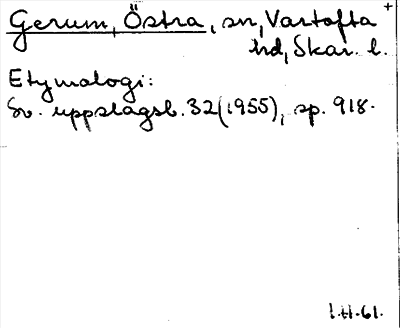 Gerum, Östra, sn, Vartofta +
hd, Skar. l.
Etymologi:
Sv. uppslagsb. 32 (1955), sp. 918.
1.11.61.